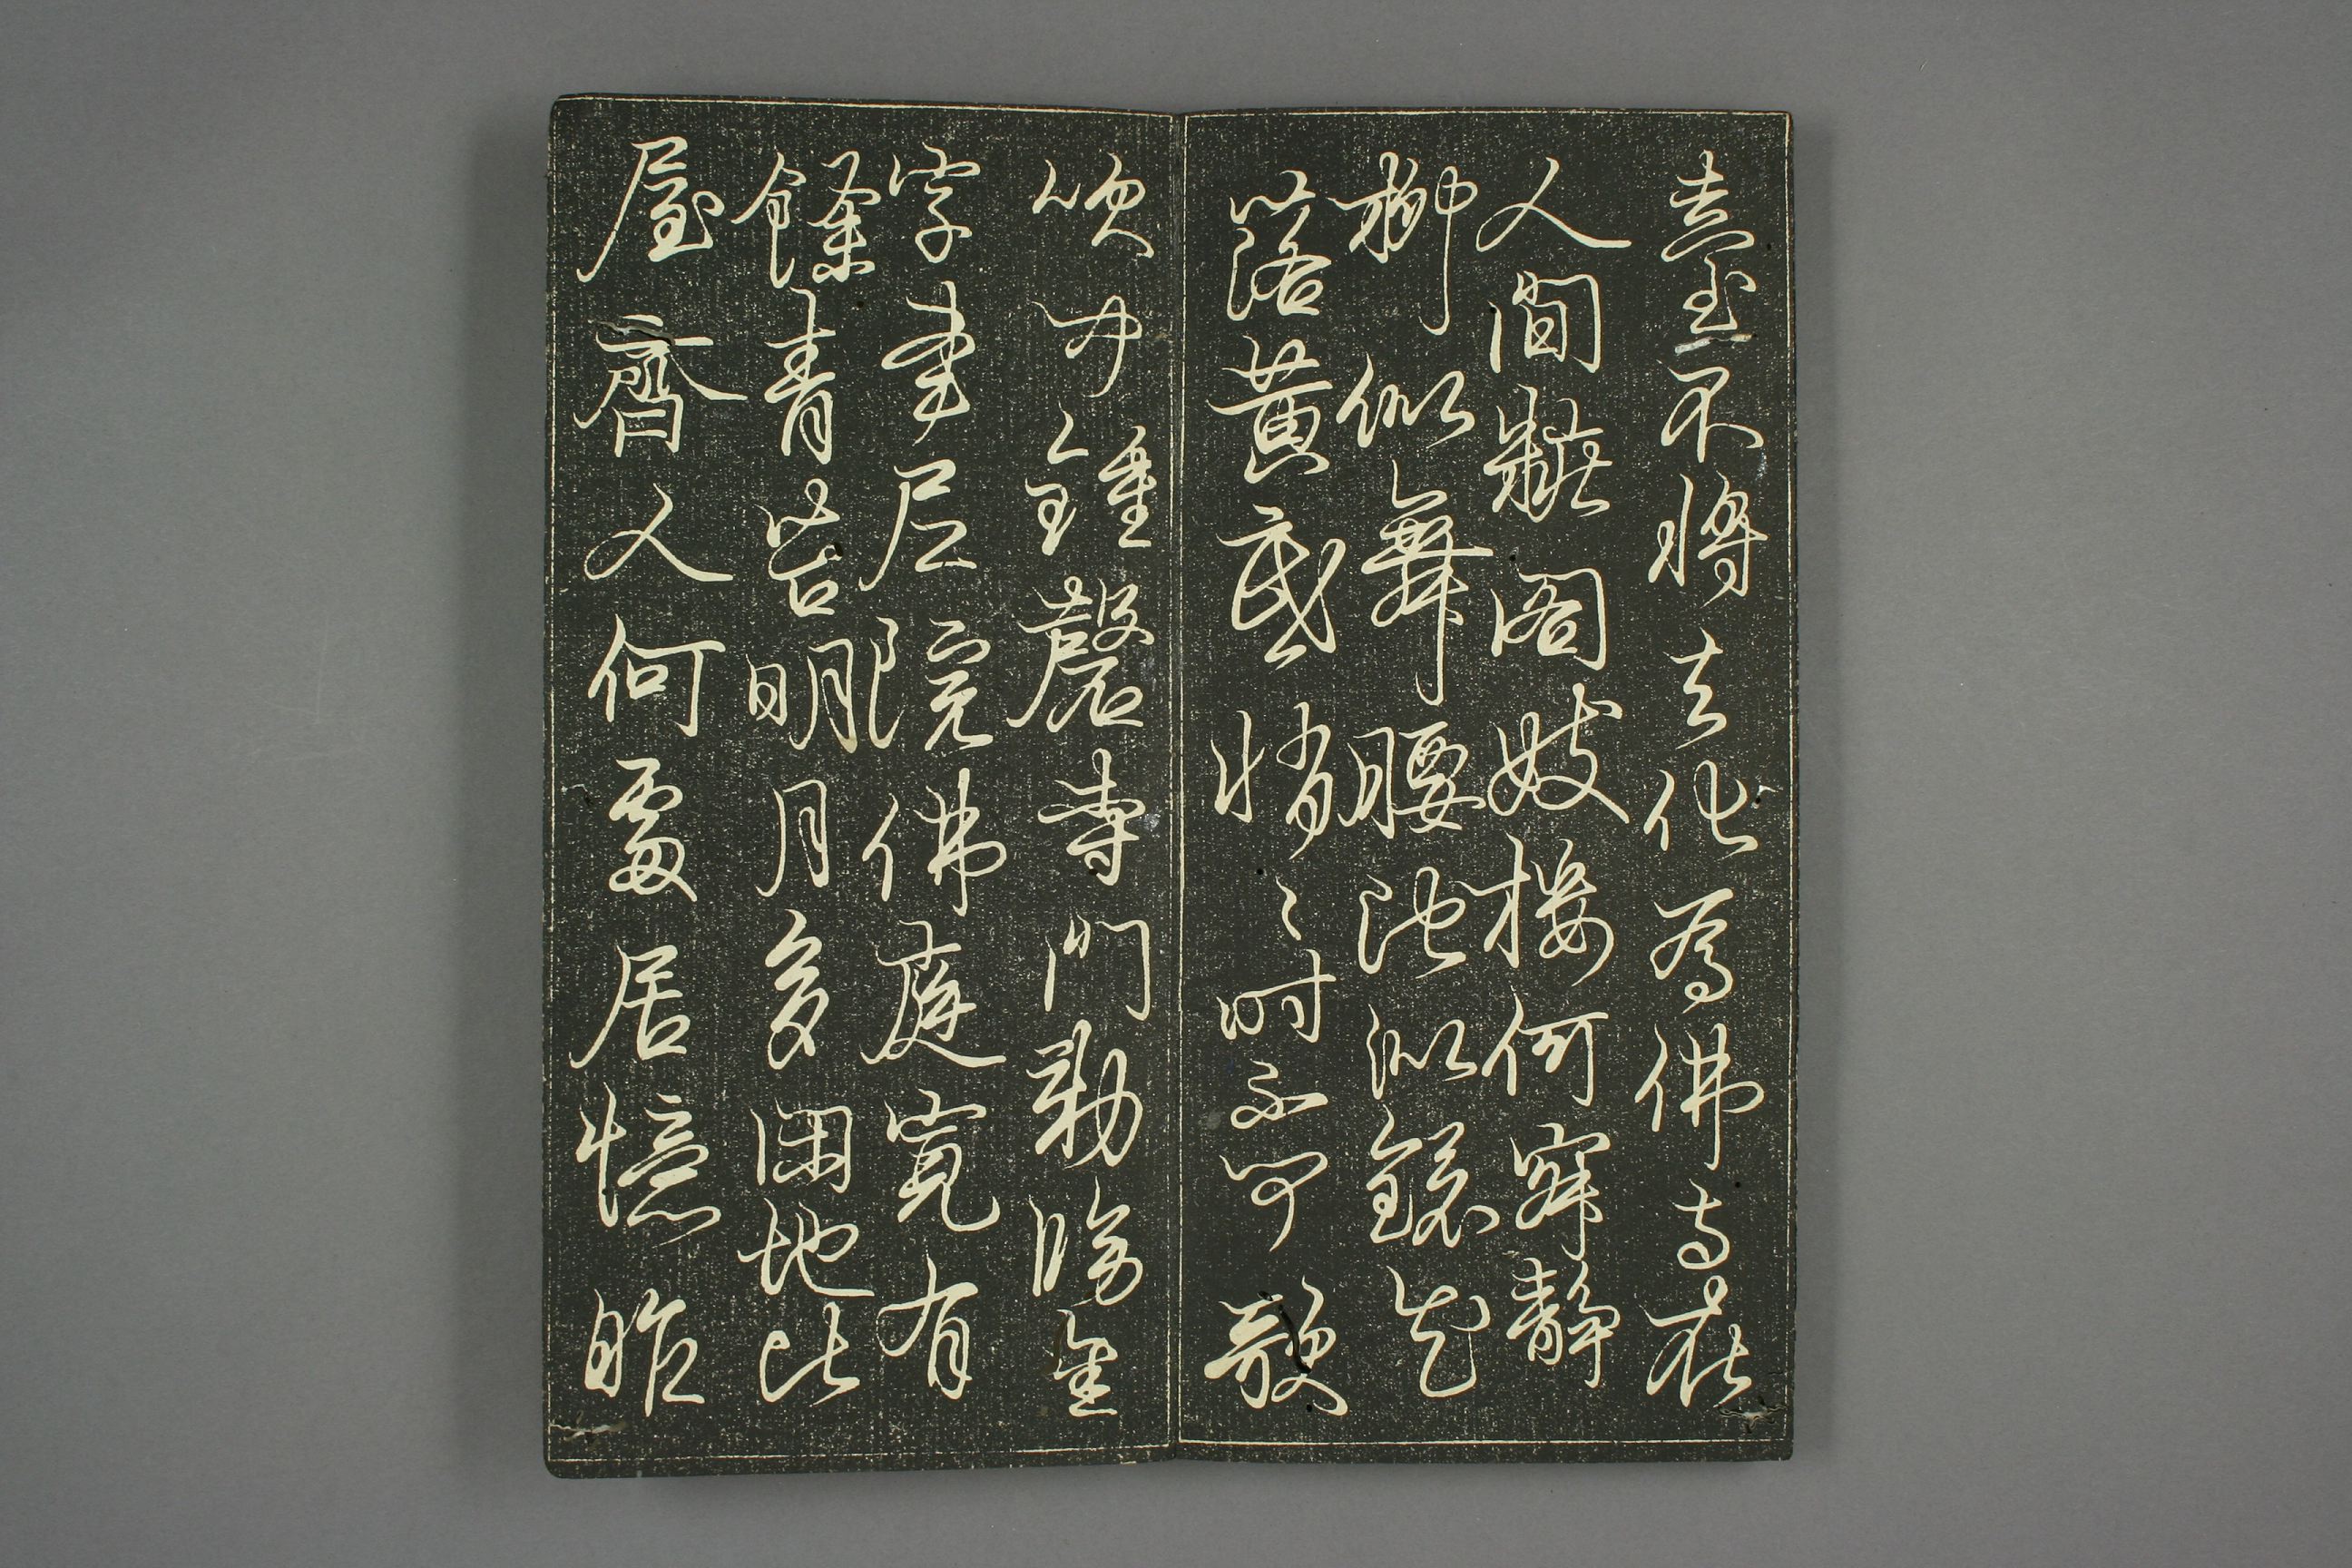 臺不將去化為佛寺在
人間糚閣妓樓何寂靜
柳似舞腰池似鏡花
落黃昏悄〻時不聞歌
吹聞鍾磬寺門勅牓金
字書尼院佛庭寬有
餘青苔明月多閑地比
屋齊人何處居憶昨